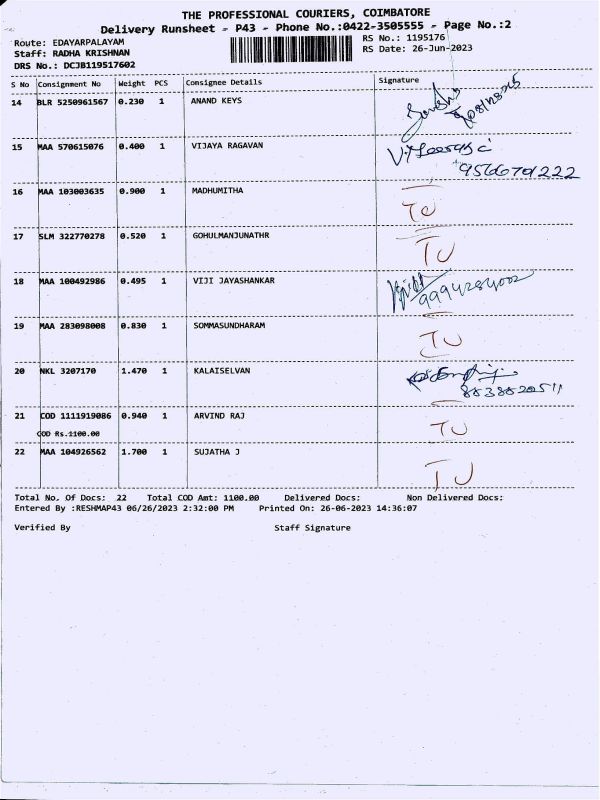 THE PROFESSIONAL COURIERS, COIMBATORE
Delivery Runsheet - P43 - Phone No.:0422-3505555 - Page No.:2
Route: EDAYARPALAYAM
RS No.: 1195176
Staff: RADHA KRISHNAN
RS Date: 26-Jun-2023
DRS No.: DCJB119517602
S No Consignment No Weight PCS Consignee Details Signature
14 BLR 5250961567 0.230 1 ANAND KEYS
15 MAA 570615076 0.400 1 VIJAYA RAGAVAN
16 MAA 103003635 0.900 1 MADHUMITHA TU
17 SLM 322770278 0.520 1 GOHULMANJUNATHR TU
18 MAA 100492986 0.495 1 VIJI JAYASHANKAR
19 MAA 283098008 0.830 1 SOMMASUNDHARAM TU
20 NKL 3207170 1.470 1 KALAISELVAN
21 COD 1111919086 0.940 1 ARVIND RAJ TU
COD Rs.1100.00
22 MAA 104926562 1.700 1 SUJATHA J TU
Total No. Of Docs: 22 Total COD Amt: 1100.00 Delivered Docs: Non Delivered Docs:
Entered By :RESHMAP43 06/26/2023 2:32:00 PM Printed On: 26-06-2023 14:36:07
Verified By Staff Signature